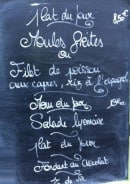 Plat du Jour 8,50€
Moules frites
ou
Filet de poisson
aux capres, riz à l'espagnol
Menu du Jour
Salade lyonnaise
Plat du Jour
Fondant au Chocolat